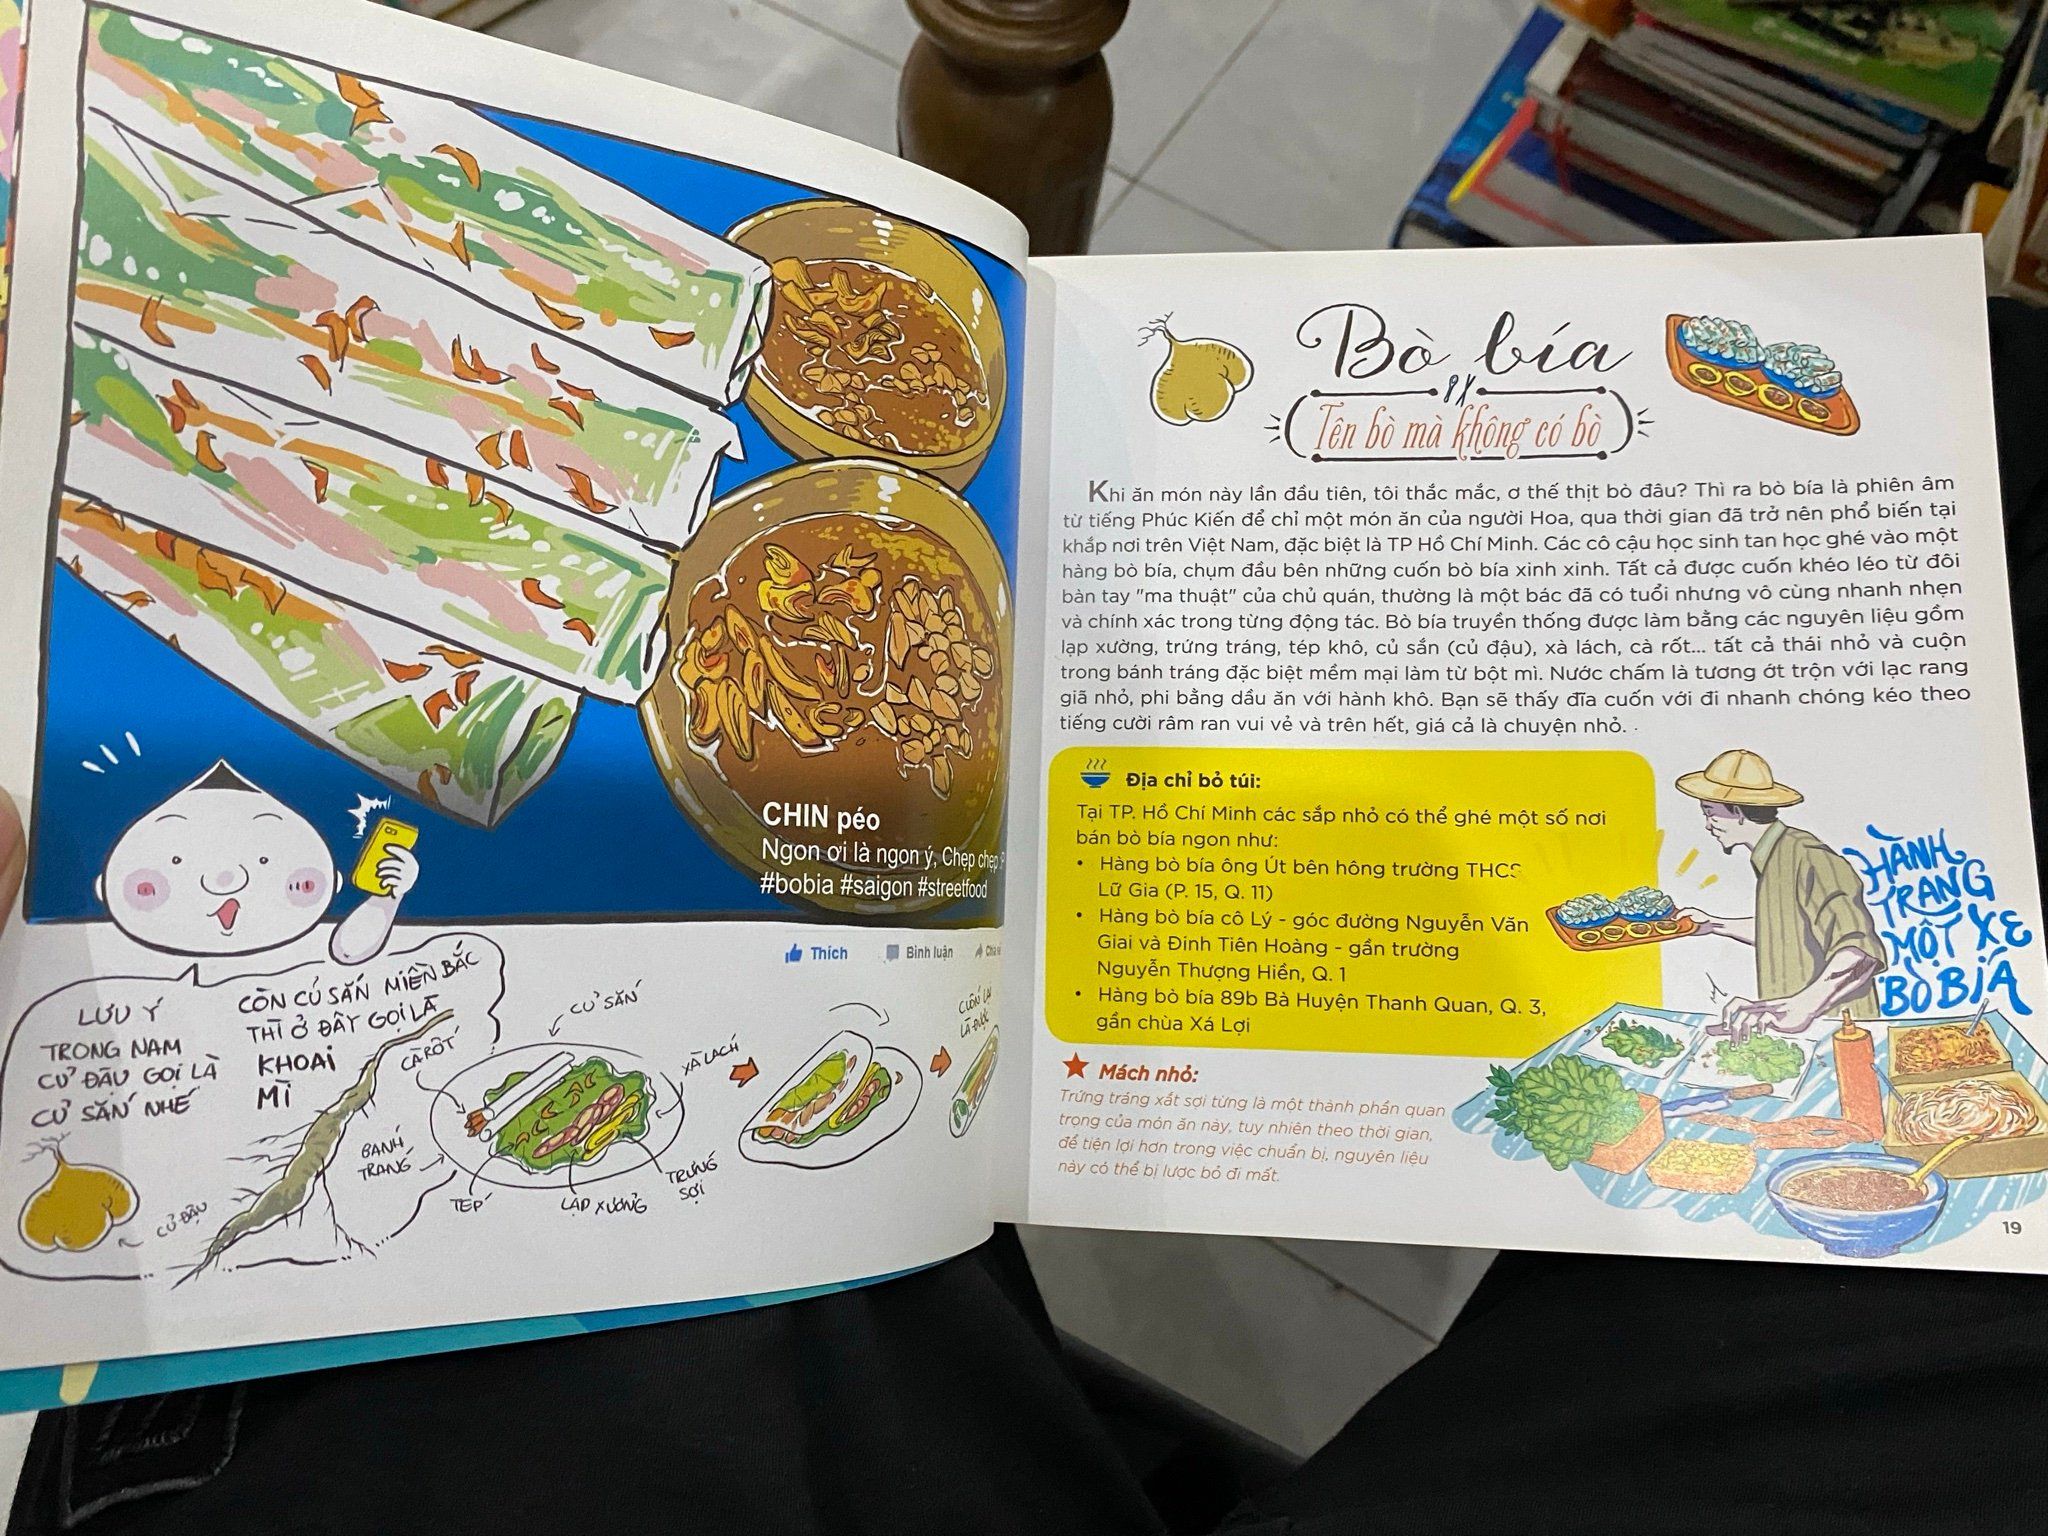 CHIN péo
Ngon ơi là ngon ý, Chẹp chẹp
#bobia #saigon #streetfood
Thích
Bình luận
LƯU Ý
TRONG NAM
CỦ ĐẬU GỌI LÀ
CỦ SẮN NHÉ
CÒN CỦ SẮN MIỀN BẮC
THÌ Ở ĐÂY GỌI LÀ
KHOAI
MÌ
CỦ ĐẬU
CỦ SẮN
CÀ RỐT
XÀ LÁCH
BÁNH
TRÁNG
TÉP
LẠP XƯỞNG
TRỨNG
SỢI
CUỐN LẠI
LÀ ĐƯỢC
Bò bía
Tên bò mà không có bò
Khi ăn món này lần đầu tiên, tôi thắc mắc, ơ thế thịt bò đâu? Thì ra bò bía là phiên âm
từ tiếng Phúc Kiến để chỉ một món ăn của người Hoa, qua thời gian đã trở nên phổ biến tại
khắp nơi trên Việt Nam, đặc biệt là TP Hồ Chí Minh. Các cô cậu học sinh tan học ghé vào một
hàng bò bía, chụm đầu bên những cuốn bò bía xinh xinh. Tất cả được cuốn khéo léo từ đôi
bàn tay "ma thuật" của chủ quán, thường là một bác đã có tuổi nhưng vô cùng nhanh nhẹn
và chính xác trong từng động tác. Bò bía truyền thống được làm bằng các nguyên liệu gồm
lạp xường, trứng tráng, tép khô, củ sắn (củ đậu), xà lách, cà rốt... tất cả thái nhỏ và cuộn
trong bánh tráng đặc biệt mềm mại làm từ bột mì. Nước chấm là tương ớt trộn với lạc rang
giã nhỏ, phi bằng dầu ăn với hành khô. Bạn sẽ thấy đĩa cuốn vơi đi nhanh chóng kéo theo
tiếng cười râm ran vui vẻ và trên hết, giá cả là chuyện nhỏ.
Địa chỉ bỏ túi:
Tại TP. Hồ Chí Minh các sắp nhỏ có thể ghé một số nơi
bán bò bía ngon như:
• Hàng bò bía ông Út bên hông trường THCS
Lữ Gia (P. 15, Q. 11)
• Hàng bò bía cô Lý - góc đường Nguyễn Văn
Giai và Đinh Tiên Hoàng - gần trường
Nguyễn Thượng Hiền, Q. 1
• Hàng bò bía 89b Bà Huyện Thanh Quan, Q. 3,
gần chùa Xá Lợi
HÀNH
TRANG
MỘT XE
BÒ BÍA
Mách nhỏ:
Trứng tráng xắt sợi từng là một thành phần quan
trọng của món ăn này, tuy nhiên theo thời gian,
để tiện lợi hơn trong việc chuẩn bị, nguyên liệu
này có thể bị lược bỏ đi mất.
19